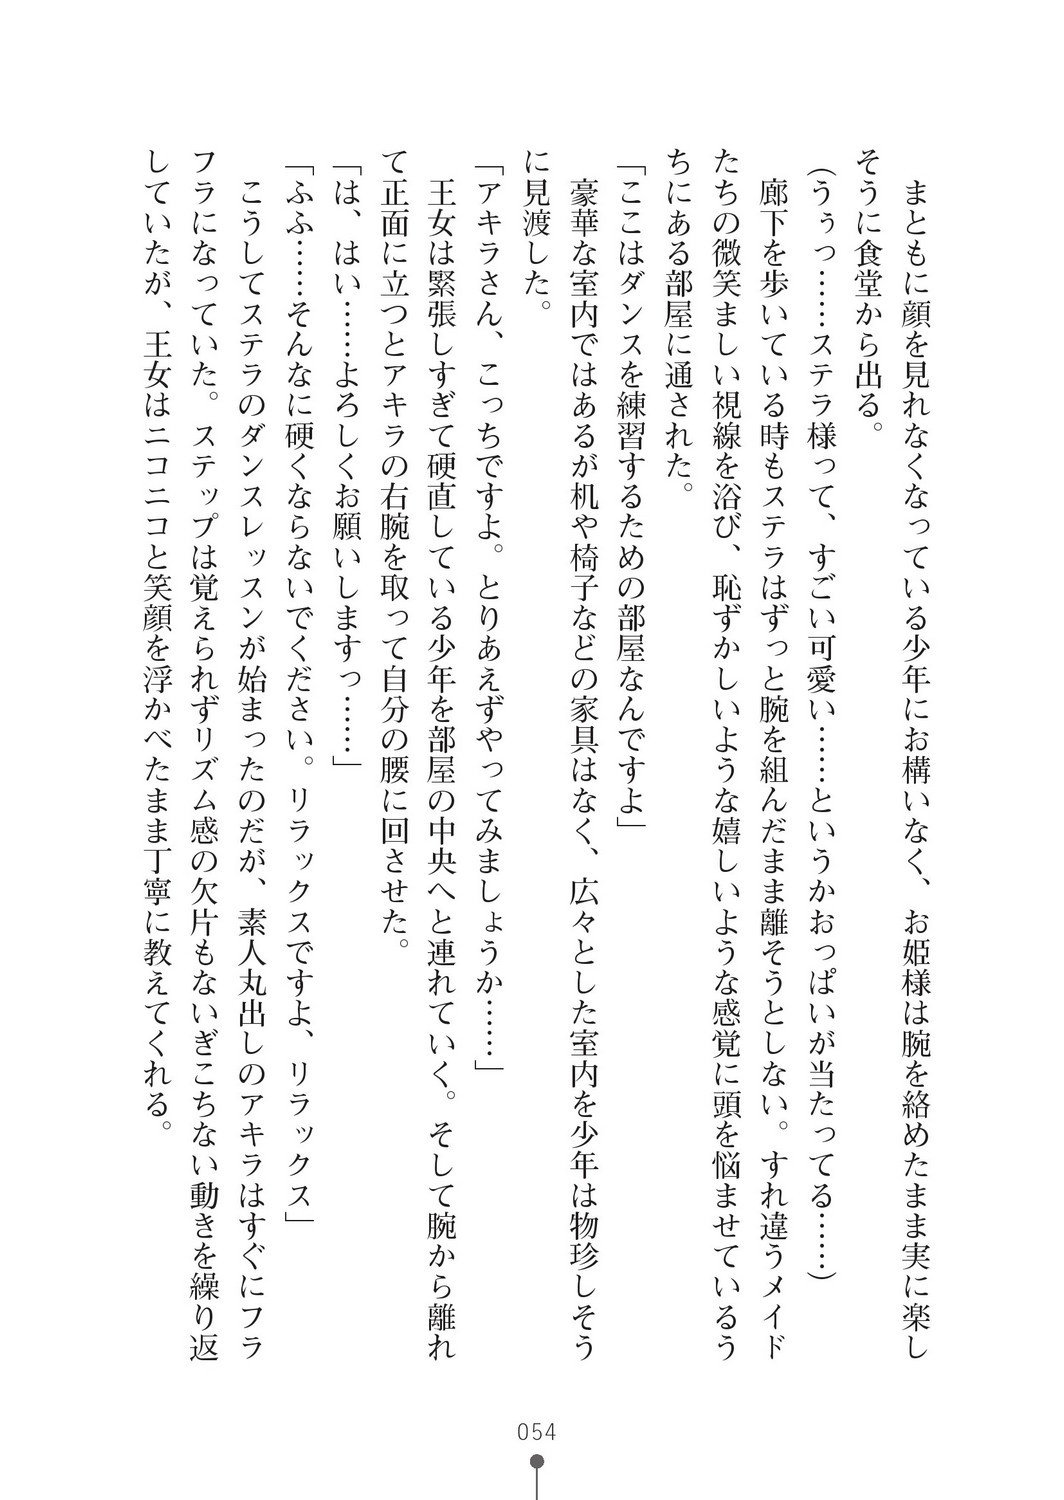 まともに顔を見れなくなっている少年にお構いなく、お姫様は腕を絡めたまま実に楽し
そうに食堂から出る。
(うぅっ……ステラ様って、すごい可愛い……というかおっぱいが当たってる……)
廊下を歩いている時もステラはずっと腕を組んだまま離そうとしない。すれ違うメイド
たちの微笑ましい視線を浴び、恥ずかしいような嬉しいような感覚に頭を悩ませているう
ちにある部屋に通された。
「ここはダンスを練習するための部屋なんですよ」
豪華な室内ではあるが机や椅子などの家具はなく、広々とした室内を少年は物珍しそう
に見渡した。
「アキラさん、こっちですよ。とりあえずやってみましょうか……」
王女は緊張しすぎて硬直している少年を部屋の中央へと連れていく。そして腕から離れ
て正面に立つとアキラの右腕を取って自分の腰に回させた。
「は、はい……よろしくお願いしますっ……」
「ふふ……そんなに硬くならないでください。リラックスですよ、リラックス」
こうしてステラのダンスレッスンが始まったのだが、素人丸出しのアキラはすぐにフラ
フラになっていた。ステップは覚えられずリズム感の欠片もないぎこちない動きを繰り返
していたが、王女はニコニコと笑顔を浮かべたまま丁寧に教えてくれる。
054